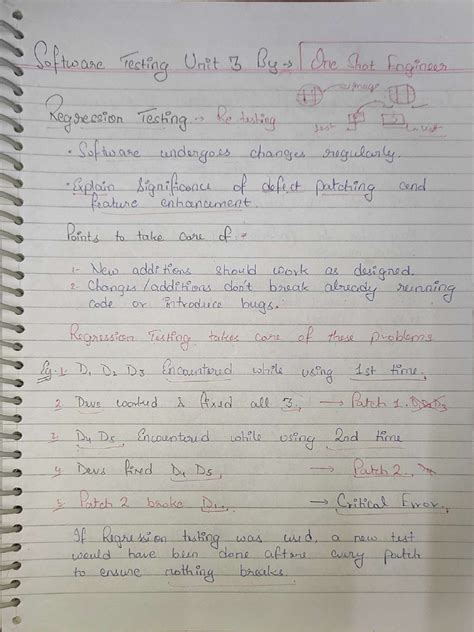 Software Testing Unit 3 By → One Shot Engineer
Regression Testing → Re testing
• Software undergoes changes regularly.
• Explain Significance of defect patching and
feature enhancement.
Points to take care of :-
1- New additions should work as designed.
2- Changes/additions don't break already running
code or introduce bugs.
Regression Testing takes care of these problems
Eg. 1. D1 D2 D3 Encountered while using 1st time.
2. Devs worked & fixed all 3. → Patch 1.
3. D4 D5, Encountered while using 2nd time
4. Devs fixed D4 D5. → Patch 2.
5. Patch 2 broke D1. → Critical Error.
If Regression testing was used, a new test
would have been done after every patch
to ensure nothing breaks.